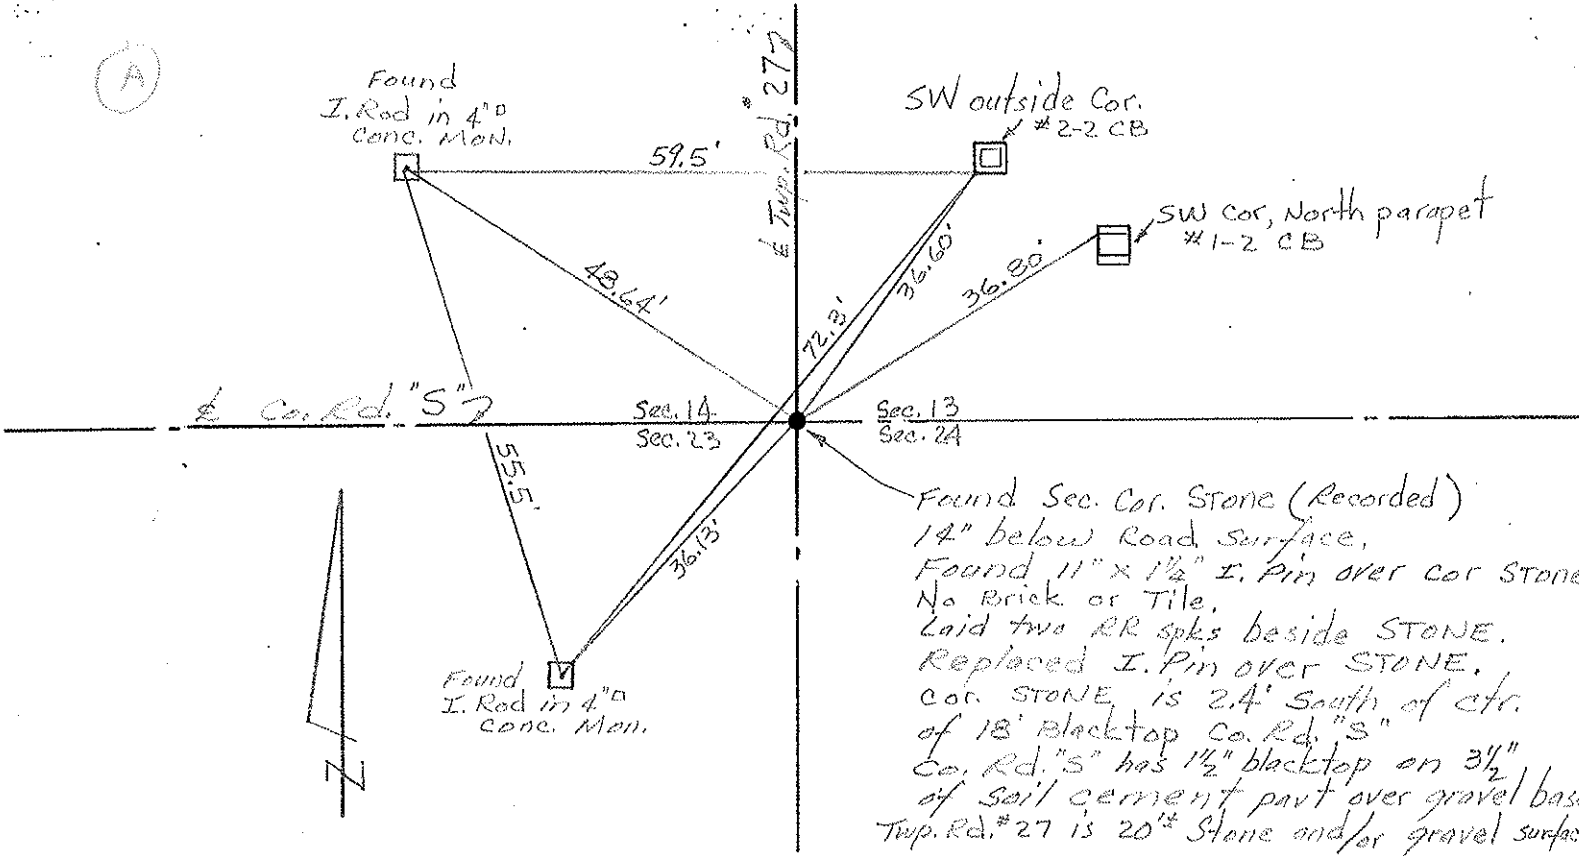 A
Found
I. Rod in 4"□
Conc. Mon.
59.5'
℄ Twp. Rd. #27
SW outside Cor.
#2-2 CB
SW Cor, North parapet
#1-2 CB
48.64'
72.3'
36.60'
36.80'
℄ Co. Rd. "S"
Sec. 14
Sec. 23
Sec. 13
Sec. 24
55.5'
36.13'
Found
I. Rod in 4"□
Conc. Mon.
N
Found Sec. Cor. Stone (Recorded)
14" below Road Surface.
Found 11" x 1½" I. Pin over Cor Stone
No Brick or Tile.
Laid two RR spks beside STONE.
Replaced I. Pin over STONE.
Cor. STONE is 2.4' South of ctr.
of 18' Blacktop Co. Rd. "S"
Co. Rd. "S" has 1½" blacktop on 3½"
of Soil cement pavt over gravel bas
Twp. Rd. #27 is 20'± Stone and/or gravel surfac